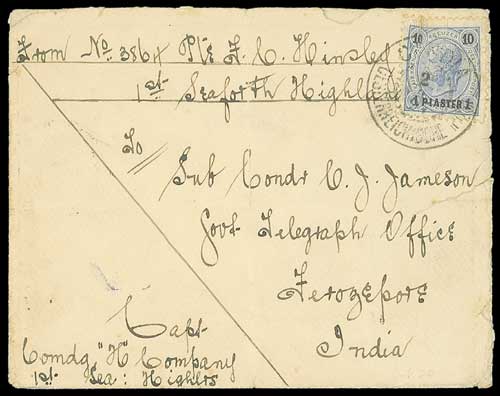 From No. 3864 Pte F. C. Hinsled
1st Seaforth Highland
10 KREUZER 10
1 PIASTER 1
2
To
Sub Condr C. J. Jameson
Govt Telegraph Office
Ferozepore
India
Capt
Comdg "H" Company
1st Sea: Highers